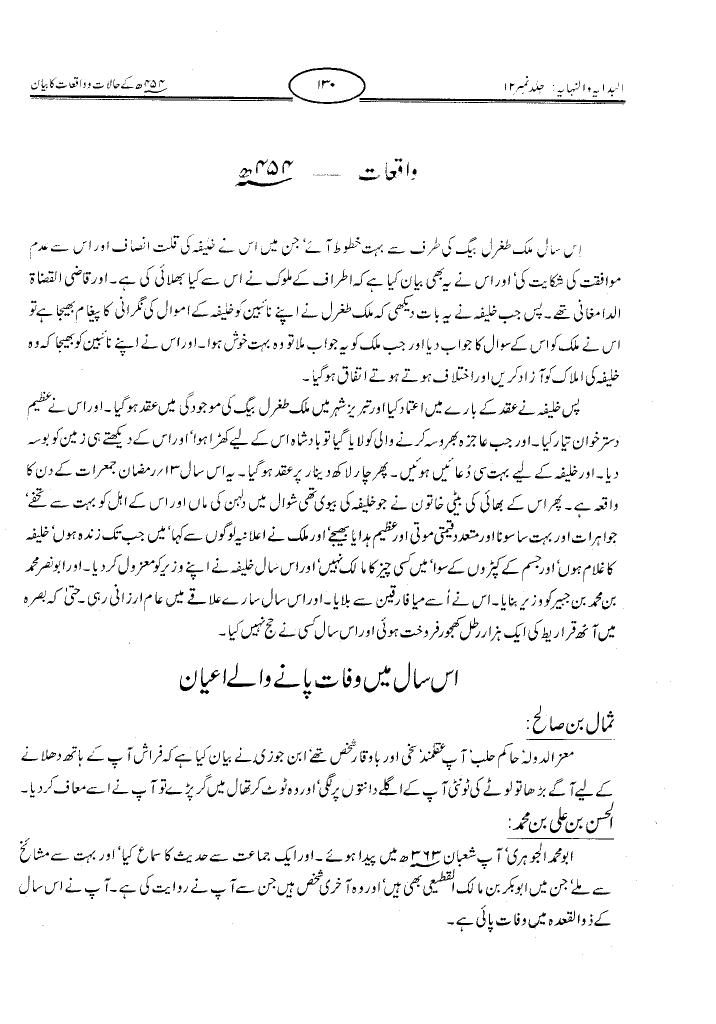 البدایہ والنہایہ: جلد نمبر ۱۲
۱۳۰
۴۵۴ھ کے حالات و واقعات کا بیان
واقعات — ۴۵۴ھ
اس سال ملک طغرل بیگ کی طرف سے بہت خطوط آئے‘ جن میں اس نے خلیفہ کی قلت انصاف اور اس سے عدم
موافقت کی شکایت کی‘ اور اس نے یہ بھی بیان کیا ہے کہ اطراف کے ملوک نے اس سے کیا بھلائی کی ہے۔ اور قاضی القضاۃ
الدامغانی تھے۔ پس جب خلیفہ نے یہ بات دیکھی کہ ملک طغرل نے اپنے نائبین کو خلیفہ کے اموال کی نگرانی کا پیغام بھیجا ہے تو
اس نے ملک کو اس کے سوال کا جواب دیا اور جب ملک کو یہ جواب ملا تو وہ بہت خوش ہوا۔ اور اس نے اپنے نائبین کو بھیجا کہ وہ
خلیفہ کی املاک کو آزاد کریں اور اختلاف ہوتے ہوتے اتفاق ہو گیا۔
پس خلیفہ نے عقد کے بارے میں اعتماد کیا اور تبریز شہر میں ملک طغرل بیگ کی موجودگی میں عقد ہو گیا۔ اور اس نے عظیم
دسترخوان تیار کیا۔ اور جب عاجزہ بھروسہ کرنے والی کو لایا گیا تو بادشاہ اس کے لیے کھڑا ہوا‘ اور اس کے دیکھتے ہی زمین کو بوسہ
دیا۔ اور خلیفہ کے لیے بہت سی دُعائیں ہوئیں۔ پھر چار لاکھ دینار پر عقد ہو گیا۔ یہ اس سال ۱۳/رمضان جمعرات کے دن کا
واقعہ ہے۔ پھر اس کے بھائی کی بیٹی خاتون نے جو خلیفہ کی بیوی تھی شوال میں دلہن کی ماں اور اس کے اہل کو بہت سے تحفے‘
جواہرات اور بہت سا سونا اور متعدد قیمتی موتی اور عظیم ہدایا بھیجے‘ اور ملک نے اعلانیہ لوگوں سے کہا‘ میں جب تک زندہ ہوں‘ خلیفہ
کا غلام ہوں‘ اور جسم کے کپڑوں کے سوا‘ میں کسی چیز کا مالک نہیں‘ اور اس سال خلیفہ نے اپنے وزیر کو معزول کر دیا۔ اور ابونصر محمد
بن محمد بن جبیر کو وزیر بنایا۔ اس نے اُسے میافارقین سے بلایا۔ اور اس سال سارے علاقے میں عام ارزانی رہی۔ حتیٰ کہ بصرہ
میں آٹھ قراریط کی ایک ہزار رطل کھجور فروخت ہوئی اور اس سال کسی نے حج نہیں کیا۔
اس سال میں وفات پانے والے اعیان
ثمال بن صالح:
معز الدولہ‘ حاکم حلب‘ آپ عقلمند‘ سخی اور باوقار شخص تھے‘ ابن جوزی نے بیان کیا ہے کہ فراش آپ کے ہاتھ دھلانے
کے لیے آگے بڑھا تو لوٹے کی ٹونٹی آپ کے اگلے دانتوں پر لگی‘ اور وہ ٹوٹ کر تھال میں گر پڑے تو آپ نے اسے معاف کر دیا۔
الحسن بن علی بن محمد:
ابو محمد الجوہری‘ آپ شعبان ۳۶۳ھ میں پیدا ہوئے۔ اور ایک جماعت سے حدیث کا سماع کیا‘ اور بہت سے مشائخ
سے ملے‘ جن میں ابوبکر بن مالک القطیعی بھی ہیں‘ اور وہ آخری شخص ہیں جن سے آپ نے روایت کی ہے۔ آپ نے اس سال
کے ذوالقعدہ میں وفات پائی ہے۔